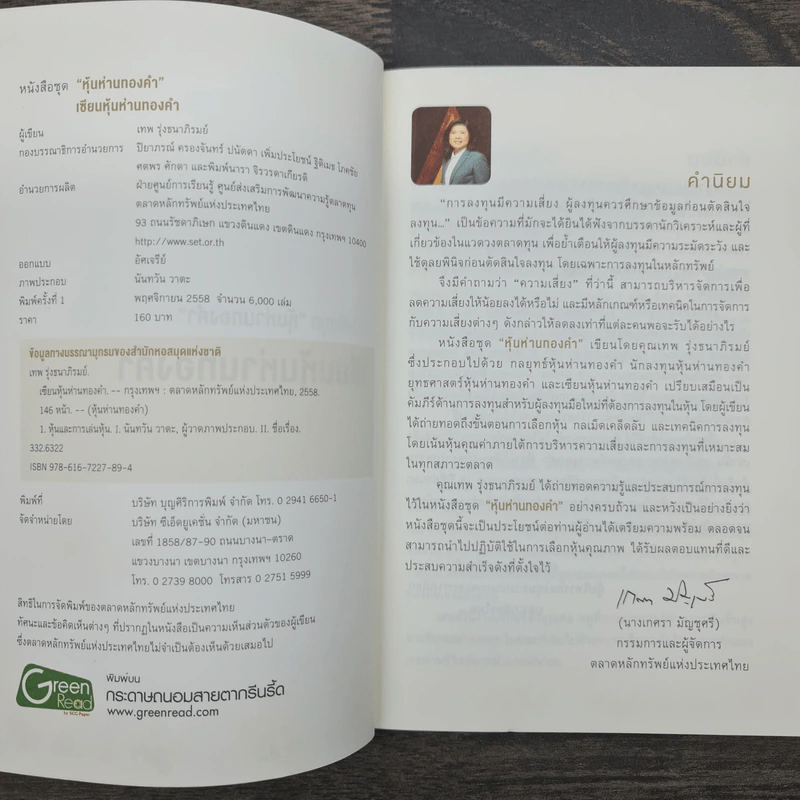 หนังสือชุด “หุ้นห่านทองคำ”
เซียนหุ้นห่านทองคำ
ผู้เขียน เทพ รุ่งธนาภิรมย์
กองบรรณาธิการอำนวยการ ปิยาภรณ์ ครองจันทร์ ปนัดดา เพิ่มประโยชน์ ฐิติเมธ โภคชัย
ศตพร ศักดา และพิมพ์นารา จิรวรดาเกียรติ
อำนวยการผลิต ฝ่ายศูนย์การเรียนรู้ ศูนย์ส่งเสริมการพัฒนาความรู้ตลาดทุน
ตลาดหลักทรัพย์แห่งประเทศไทย
93 ถนนรัชดาภิเษก แขวงดินแดง เขตดินแดง กรุงเทพฯ 10400
http://www.set.or.th
ออกแบบ อัศเจรีย์
ภาพประกอบ นันทวัน วาตะ
พิมพ์ครั้งที่ 1 พฤศจิกายน 2558 จำนวน 6,000 เล่ม
ราคา 160 บาท
ข้อมูลทางบรรณานุกรมของสำนักหอสมุดแห่งชาติ
เทพ รุ่งธนาภิรมย์.
เซียนหุ้นห่านทองคำ. -- กรุงเทพฯ : ตลาดหลักทรัพย์แห่งประเทศไทย, 2558.
146 หน้า. -- (หุ้นห่านทองคำ)
1. หุ้นและการเล่นหุ้น. I. นันทวัน วาตะ, ผู้วาดภาพประกอบ. II. ชื่อเรื่อง.
332.6322
ISBN 978-616-7227-89-4
พิมพ์ที่ บริษัท บุญศิริการพิมพ์ จำกัด โทร. 0 2941 6650-1
จัดจำหน่ายโดย บริษัท ซีเอ็ดยูเคชั่น จำกัด (มหาชน)
เลขที่ 1858/87-90 ถนนบางนา-ตราด
แขวงบางนา เขตบางนา กรุงเทพฯ 10260
โทร. 0 2739 8000 โทรสาร 0 2751 5999
สิทธิในการจัดพิมพ์ของตลาดหลักทรัพย์แห่งประเทศไทย
ทัศนะและข้อคิดเห็นต่างๆ ที่ปรากฏในหนังสือเป็นความเห็นส่วนตัวของผู้เขียน
ซึ่งตลาดหลักทรัพย์แห่งประเทศไทยไม่จำเป็นต้องเห็นด้วยเสมอไป
Green
Read
by SCG Paper
พิมพ์บน
กระดาษถนอมสายตากรีนรี้ด
www.greenread.com
คำนิยม
“การลงทุนมีความเสี่ยง ผู้ลงทุนควรศึกษาข้อมูลก่อนตัดสินใจ
ลงทุน...” เป็นข้อความที่มักจะได้ยินได้ฟังจากบรรดานักวิเคราะห์และผู้ที่
เกี่ยวข้องในแวดวงตลาดทุน เพื่อย้ำเตือนให้ผู้ลงทุนมีความระมัดระวัง และ
ใช้ดุลยพินิจก่อนตัดสินใจลงทุน โดยเฉพาะการลงทุนในหลักทรัพย์
จึงมีคำถามว่า “ความเสี่ยง” ที่ว่านี้ สามารถบริหารจัดการเพื่อ
ลดความเสี่ยงให้น้อยลงได้หรือไม่ และมีหลักเกณฑ์หรือเทคนิคในการจัดการ
กับความเสี่ยงต่างๆ ดังกล่าวให้ลดลงเท่าที่แต่ละคนพอจะรับได้อย่างไร
หนังสือชุด “หุ้นห่านทองคำ” เขียนโดยคุณเทพ รุ่งธนาภิรมย์
ซึ่งประกอบไปด้วย กลยุทธ์หุ้นห่านทองคำ นักลงทุนหุ้นห่านทองคำ
ยุทธศาสตร์หุ้นห่านทองคำ และเซียนหุ้นห่านทองคำ เปรียบเสมือนเป็น
คัมภีร์ด้านการลงทุนสำหรับผู้ลงทุนมือใหม่ที่ต้องการลงทุนในหุ้น โดยผู้เขียน
ได้ถ่ายทอดถึงขั้นตอนการเลือกหุ้น กลเม็ดเคล็ดลับ และเทคนิคการลงทุน
โดยเน้นหุ้นคุณค่าภายใต้การบริหารความเสี่ยงและการลงทุนที่เหมาะสม
ในทุกสภาวะตลาด
คุณเทพ รุ่งธนาภิรมย์ ได้ถ่ายทอดความรู้และประสบการณ์การลงทุน
ไว้ในหนังสือชุด “หุ้นห่านทองคำ” อย่างครบถ้วน และหวังเป็นอย่างยิ่งว่า
หนังสือชุดนี้จะเป็นประโยชน์ต่อท่านผู้อ่านได้เตรียมความพร้อม ตลอดจน
สามารถนำไปปฏิบัติใช้ในการเลือกหุ้นคุณภาพ ได้รับผลตอบแทนที่ดีและ
ประสบความสำเร็จดังที่ตั้งใจไว้
(นางเกศรา มัญชุศรี)
กรรมการและผู้จัดการ
ตลาดหลักทรัพย์แห่งประเทศไทย